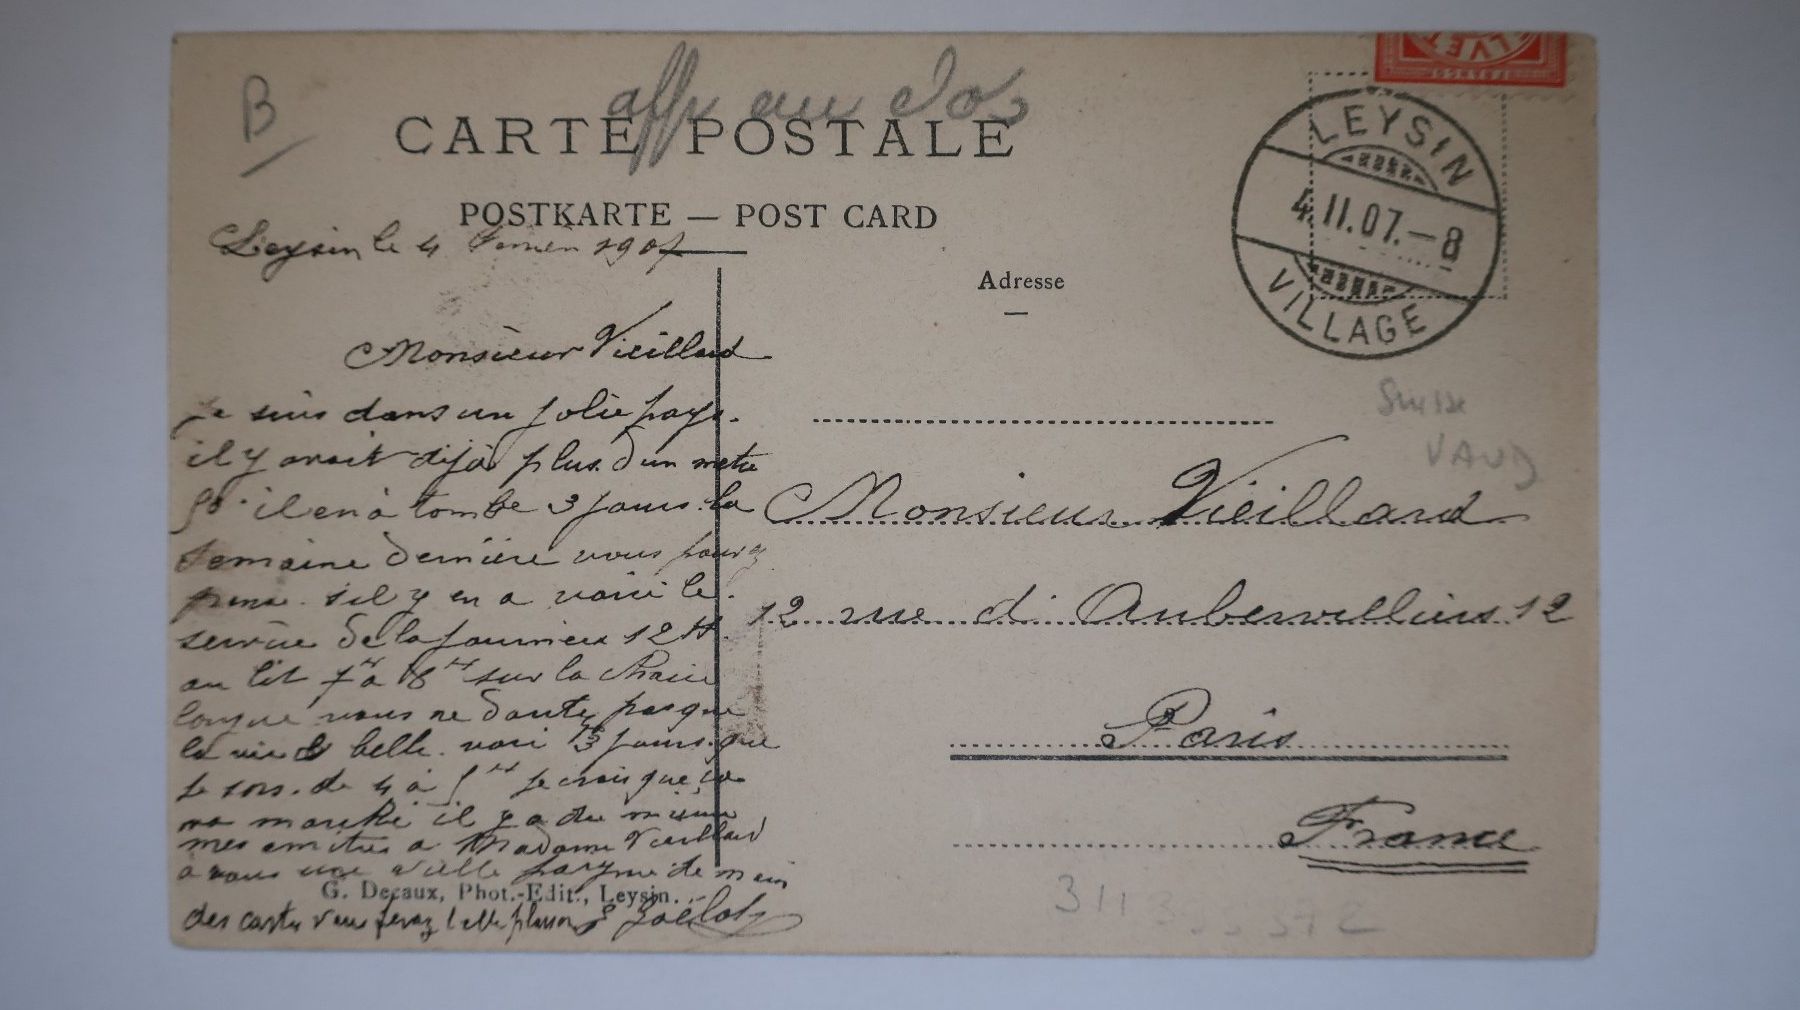 B
aff au dos
CARTE POSTALE
POSTKARTE — POST CARD
Leysin le 4 1907
Adresse
LEYSIN
4.II.07.–8
VILLAGE
Monsieur Vieillard
Je suis dans un jolie pays.
il y avait déjà plus d'un metre
il en à tombe 3 jours la
semaine dernière vous
s'il y en a voici le
service de la journiere 12 H.
au lit 7 H à 8 H sur la chaise
longue vous ne doutez pas que
la vie belle. 3 jours que
je sors. de 4 à 5 H je crois que ça
va marché il y a du mieux
mes amitiés a Madame Vieillard
a vous une vielle de main
G. Decaux, Phot.-Edit., Leysin.
des cartes vous ferez
Suisse
VAUD
Monsieur Vieillard
12 rue d'Aubervilliers 12
Paris
France